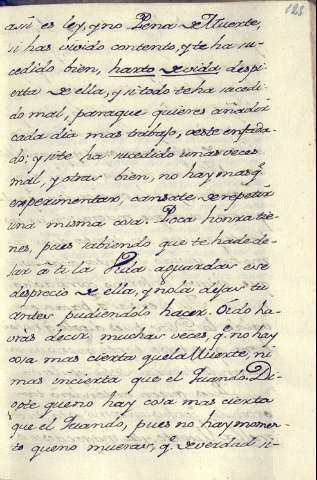 123
assi es ley, y no Pena de Muerte,
si has vivido contento, y te ha su-
cedido bien, harto de vida, despi-
erta de ella, y si todo te ha sucedi-
do mal, paraque quieres añadir
cada dia mas trabajo, veste enfada-
do; y si te ha sucedido unas veces
mal, y otras bien, no hay mas q.
experimentar, cansate de repetir
una misma cosa. Poca honra tie-
nes, pues sabiendo que te ha de de-
jar à ti la Vida aguardas ese
desprecio de ella, y no la dejas tu
antes pudiendolo hacer. Oido ha-
vràs decir muchas veces, q. no hay
cosa mas cierta que la Muerte, ni
mas incierta que el Quando. Di-
gote que no hay cosa mas cierta
que el Quando, pues no hay momen-
to que no mueras, q. de verdad si-